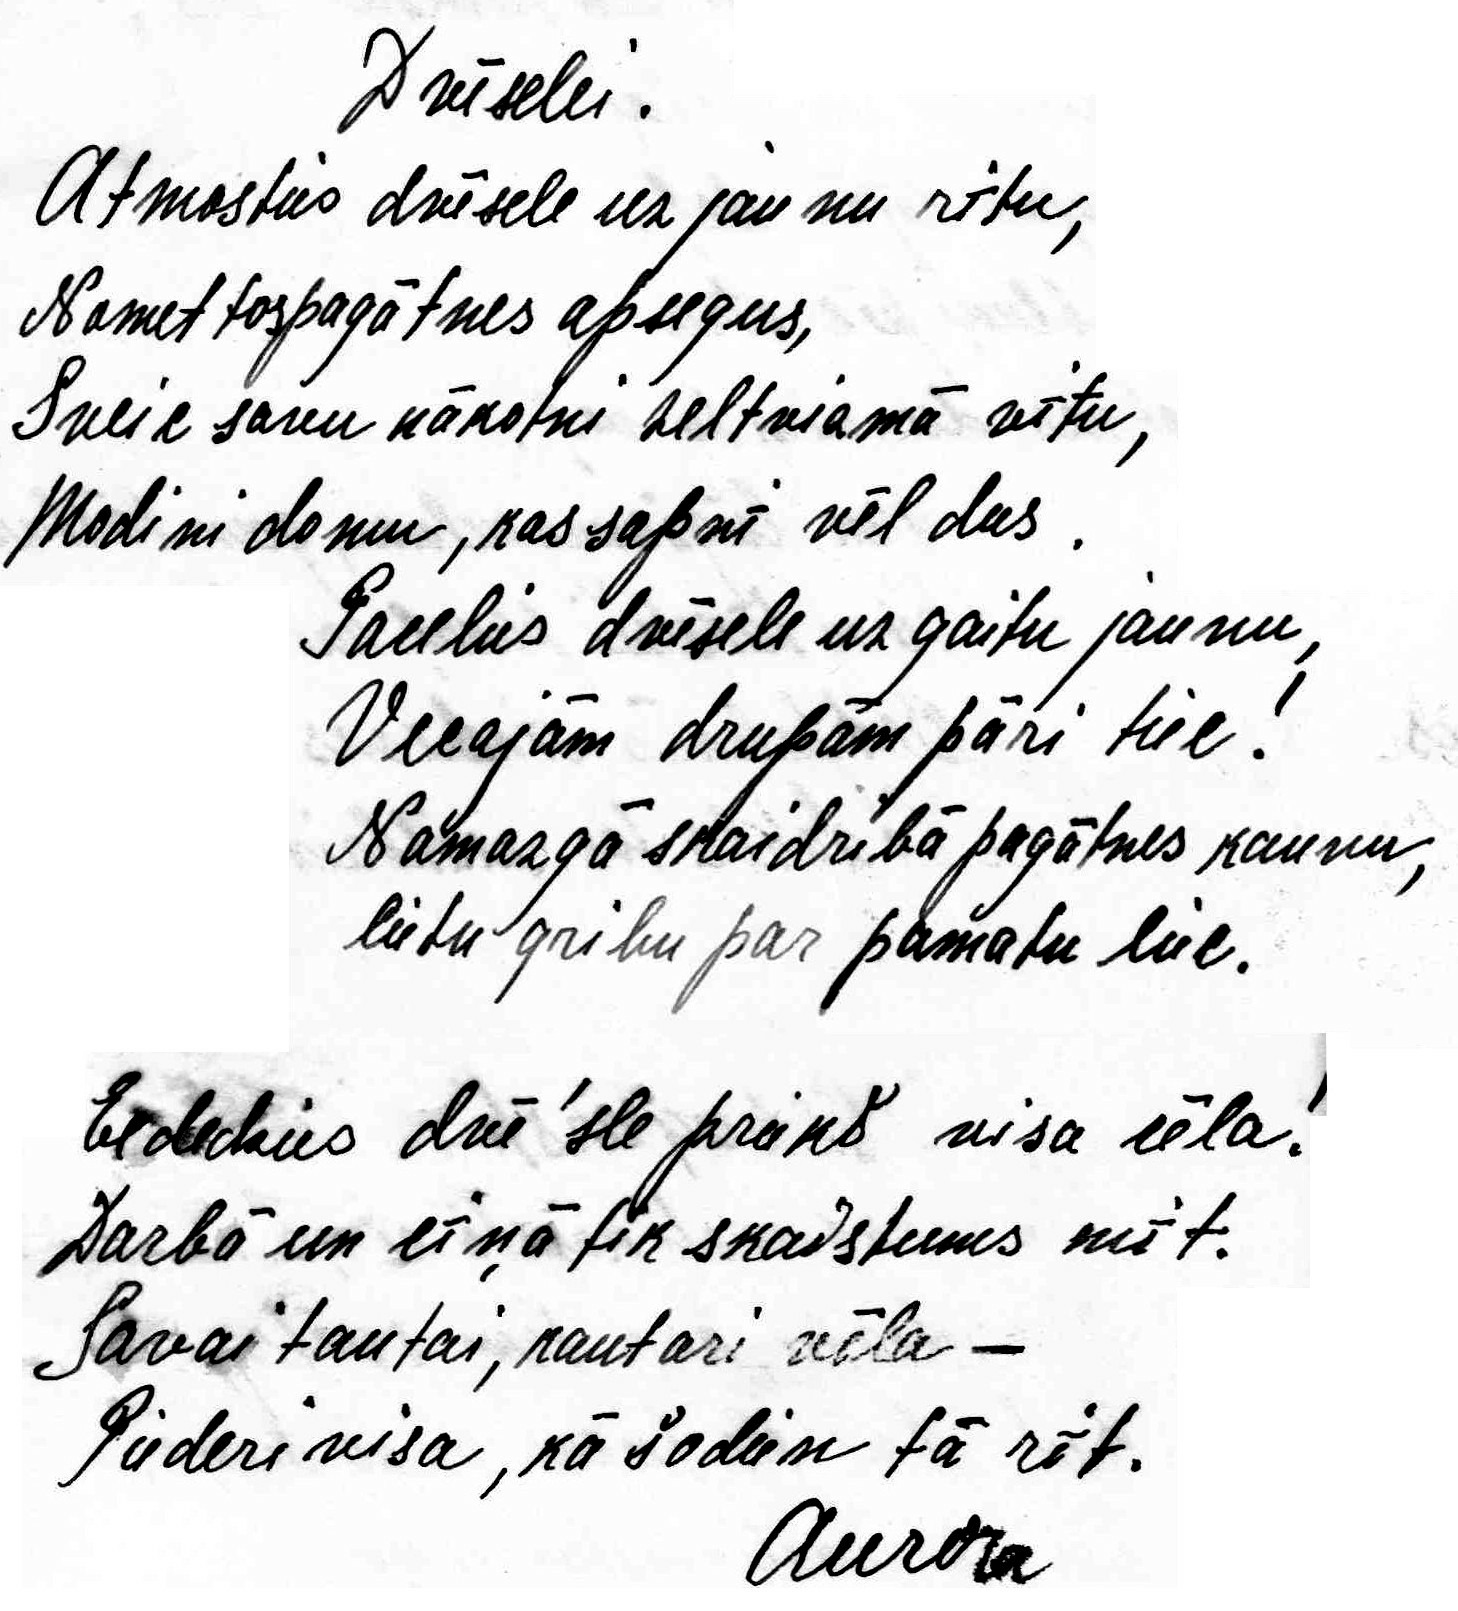 Dvēselei.
Atmosties dvēsele uz jaunu rītu,
Nomet tos pagātnes apsegus,
Sveic savu nākotni zeltviļamā vītu,
Modini domu, kas sapnī vēl dus.
Pacelies dvēsele uz gaitu jaunu,
Vecajām drupām pāri tiec!
Nomazgā skaidrībā pagātnes kaunu,
Cietu gribu par pamatu liec.
Iededzies dvē'sle priekš visa cēla!
Darbā un cīņā tik skaistums mīt.
Savai tautai, kaut arī vēla –
Piederi visa, kā šodien tā rīt.
Aurora